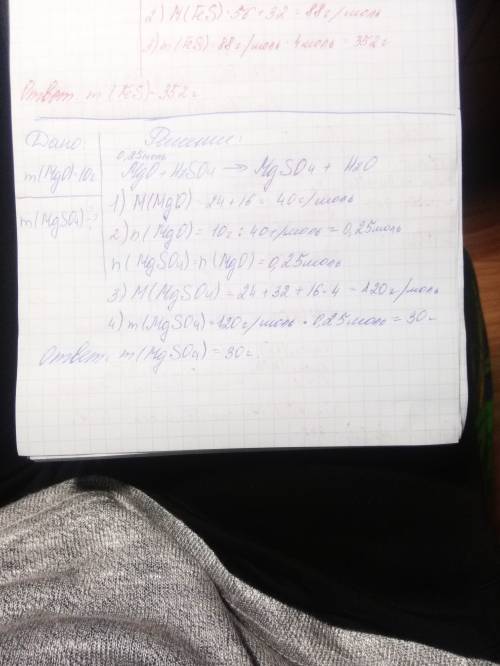 2) M(FeS) = 56 + 32 = 88 г/моль
3) m(FeS) = 88 г/моль · 4 моль = 352 г
Ответ: m(FeS) = 352 г
Дано:
m(MgO) = 10г
m(MgSO4) - ?
Решение:
0,25моль
MgO + H2SO4 → MgSO4 + H2O
1) M(MgO) = 24 + 16 = 40г/моль
2) n(MgO) = 10г : 40г/моль = 0,25моль
n(MgSO4) = n(MgO) = 0,25моль
3) M(MgSO4) = 24 + 32 + 16·4 = 120г/моль
4) m(MgSO4) = 120г/моль · 0,25моль = 30г
Ответ: m(MgSO4) = 30г.